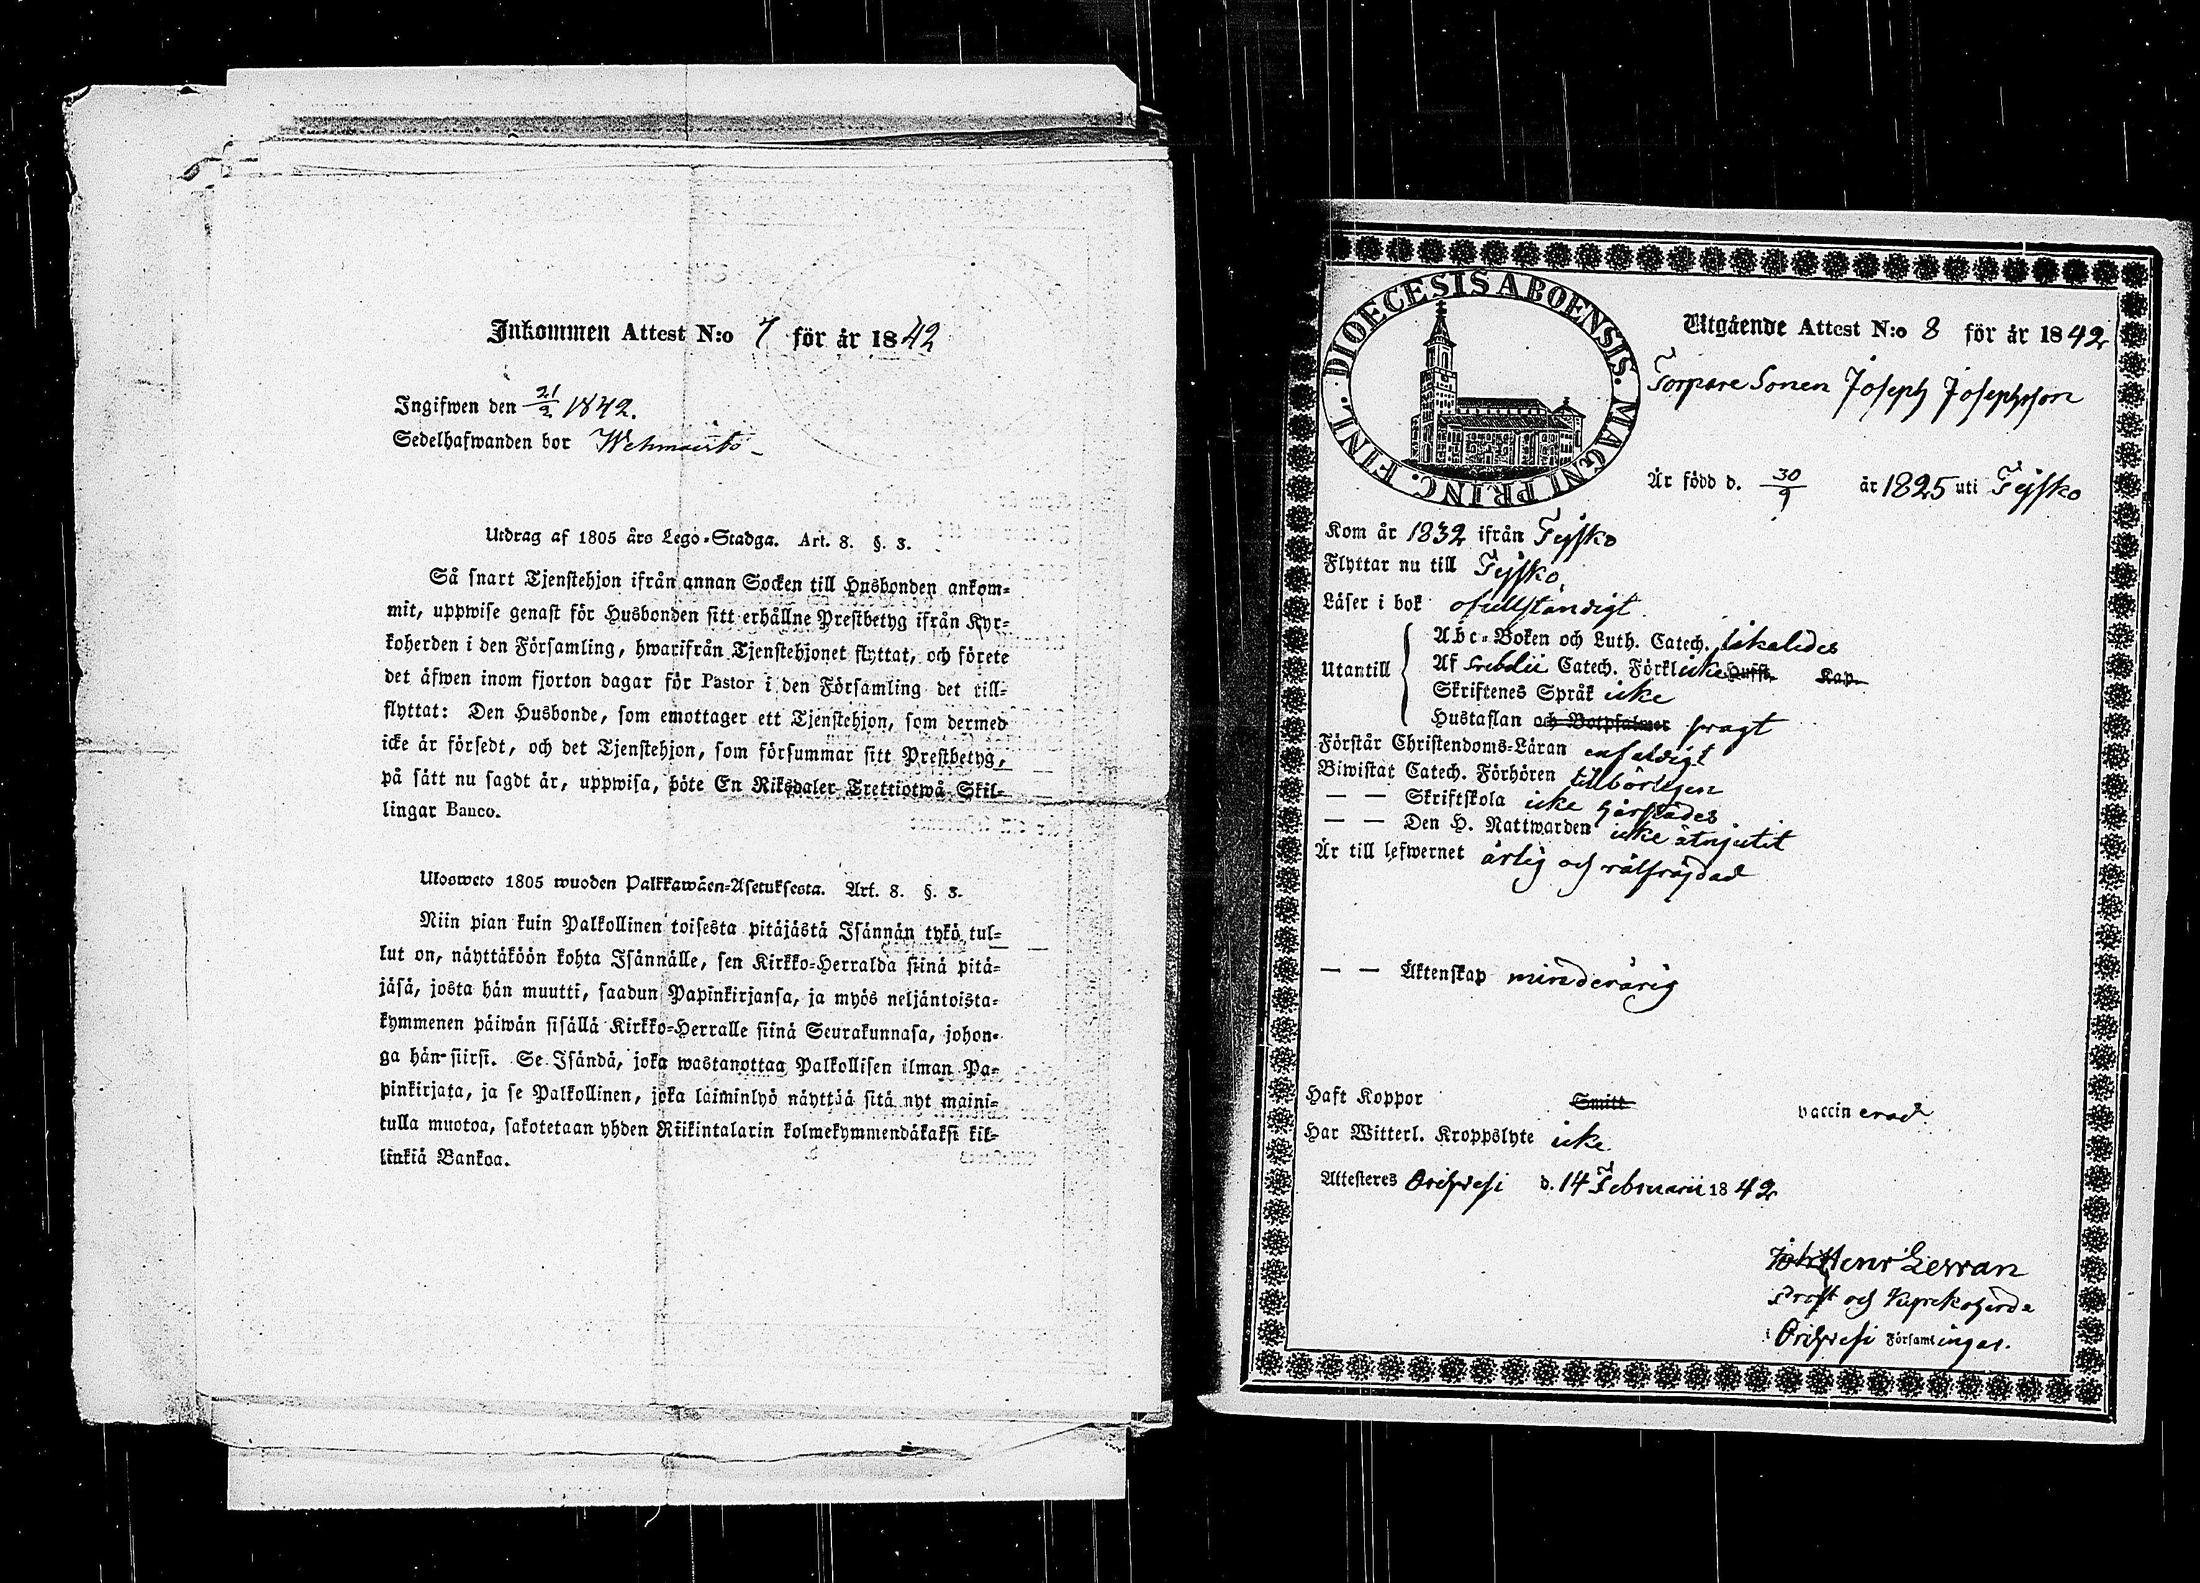 Inkommen Attest N:o 7 för år 1842
Ingifwen den 21/2 1842.
Sedelhafwanden bor Wehmais
Utdrag af 1805 års Lego-Stadga. Art. 8. §. 3.
Så snart Tjenstehjon ifrån annan Socken till Husbonden ankom-
mit, uppwise genast för Husbonden sitt erhållne Prestbetyg ifrån Kyr-
koherden i den Församling, hwarifrån Tjenstehjonet flyttat, och förete
det äfwen inom fjorton dagar för Pastor i den Församling det till-
flyttat: Den Husbonde, som emottager ett Tjenstehjon, som dermed
icke är försedt, och det Tjenstehjon, som försummar sitt Prestbetyg,
på sätt nu sagdt är, uppwisa, böte En Riksdaler Trettiotwå Skil-
lingar Banco.
Ulosweto 1805 wuoden Palkkawäen-Asetuksesta. Art. 8. §. 3.
Niin pian kuin Palkollinen toisesta pitäjästä Isännän tykö tul-
lut on, näyttäköön kohta Isännälle, sen Kirkko-Herralda siinä pitä-
jäsä, josta hän muutti, saadun Papinkirjansa, ja myös neljäntoista-
kymmenen päiwän sisällä Kirkko-Herralle siinä Seurakunnasa, johon-
ga hän siirsi. Se Isändä, joka wastanottaa Palkollisen ilman Pa-
pinkirjata, ja se Palkollinen, joka laiminlyö näyttää sitä nyt maini-
tulla muotoa, sakotetaan yhden Riikintalarin kolmekymmendäkaksi kil-
linkiä Bankoa.
DIOECESIS ABOENSIS. MAGNI PRINC. FINL.
Utgående Attest N:o 8 för år 1842
Torpare Sonen Joseph Josephsson
Är född d. 30/9 år 1825 uti Tejsko
Kom år 1832 ifrån Tejsko
Flyttar nu till Tejsko.
Läser i bok ofullständigt
Utantill
Abc-Boken och Luth. Catech. likaledes
Af Svebelii Catech. Förkl icke Hufst. Kap.
Skriftenes Språk icke
Hustaflan och Botpsalmer svagt
Förstår Christendoms-Läran enfaldigt
Biwistat Catech. Förhören tillbörligen
— — Skriftskola icke härstädes
— — Den H. Nattwarden icke åtnjutit
Är till lefwernet ärlig och välfrägdad
— — Äktenskap minderårig
Haft Koppor Smitt vaccinerad
Har Witterl. Kroppslyte icke
Attesteres Orihvesi d. 14 Februarii 1842
Joh Henr
Prost och Kyrckoherde
i Orihvesi Församlingar.